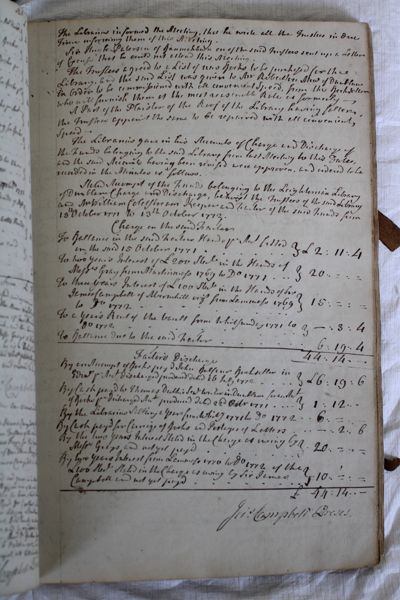 The Librarian informed the Meeting, that he wrote all the Trustees in Due
Time informing them of this Meeting.
Sir Hugh Paterson of Bannockburn one of the said Trustees sent up a Letter
of Excuse that he could not attend this Meeting.
The Trustees agreed to a List of new Books to be purchased for the
Library, and the said List was given to Mr Robertson Minr of Dunblane
In order to be commissioned with all convenient Speed, from the Bookseller
who will furnish them at the most reasonable Rate as formerly
A Part of the Plaister of the Roof of the Library having fallen,
the Trustees appoint the same to be repaired with all convenient
Speed
The Librarian gave in his Accounts of Charge and Discharge of
the Funds belonging to the said Library from last Meeting to this Date,
and the said Accounts having been revised were approven, and ordered to be
recorded in the Minutes as follows.
Accompt of the Funds belonging to the Leightonian Library
of Dunblane Charge and Discharge, betwixt the Trustees of the said Library
and Mr William Coldstream Keeper and Factor of the said Funds from
15th October 1771 to 13th October 1772.
Charge on the said Factor
To Ballance in the said Factors Hand, pr Accot settled
on the said 15 October 1771 £ 2 : 11 : 4
To two years Interest of £200 Sterl. in the Hands of
Messrs Gray from Martinmass 1769 to Do 1771 20
To three years Interest of £100 Sterl. in the Hands of Sir
James Campbell of Aberuchill from Lammass 1769
to Do 1772 15
To a years Rent of the Vault from Whitsunday 1771 to
Do 1772 3 : 4
To Ballance due to the said Factor 6 : 19 : 4
44 : 14
Factors Discharge
By an Accompt of Books payd John Balfour Bookseller in
Edinr pr Accot Discharged produced dated 16 July 1772 £ 6 : 19 : 6
By Cash payd to Thomas Duthie
of Books pr Discharged Accot produced dated 26 Octr 1771 1 : 12
By the Librarians Sallary a year from 1771 to Do 1772 6
By Cash payd for Carriage of Books and Postages of Letters 2 : 6
By the two years Interest stated in the Charge as owing by
Messrs Grays and not yet payd 20
By two years Interest from Lammass 1770 to Do 1772 of the
£100 Sterl. stated in the Charge as owing by Sir James
Campbell and not yet payd 10
£ 44 : 14
Campbell Preses